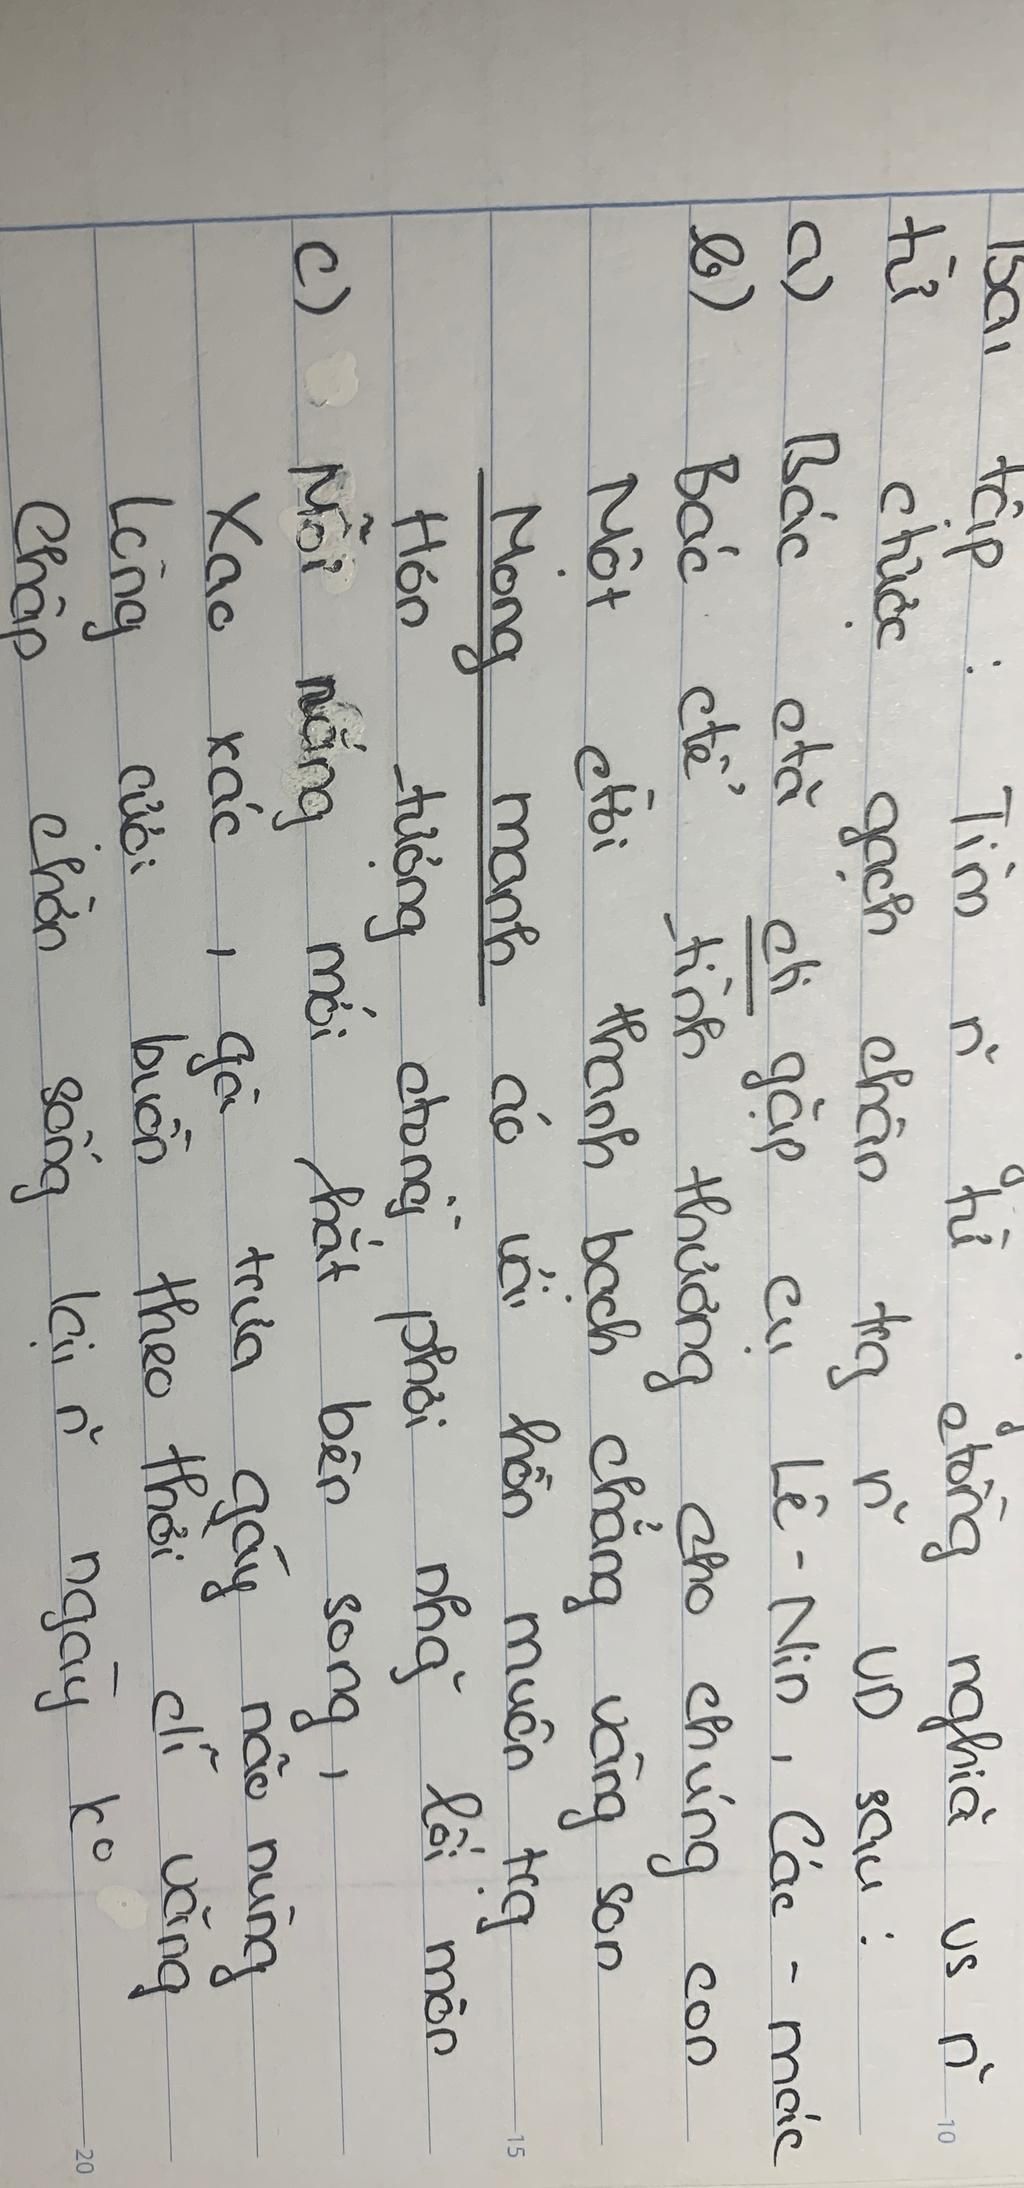 Bài tập : Tìm n` từ đồng nghĩa vs n`
từ chức gạch chân trg n` VD sau :
a) Bác đã đi gặp cụ Lê - Nin , Các - mác
b) Bác để tình thương cho chúng con
Một đời thanh bạch chẳng vàng son
Mong manh áo vải hồn muôn trg
Hơn tượng đồng phơi nhg~ lối mòn
c) Mỗi nắng mới hắt bên song ,
Xao xác , gà trưa gáy não nùng
Lòng cười buồn theo thời dĩ vãng
Chập chờn sống lại n` ngày ko
10
15
20